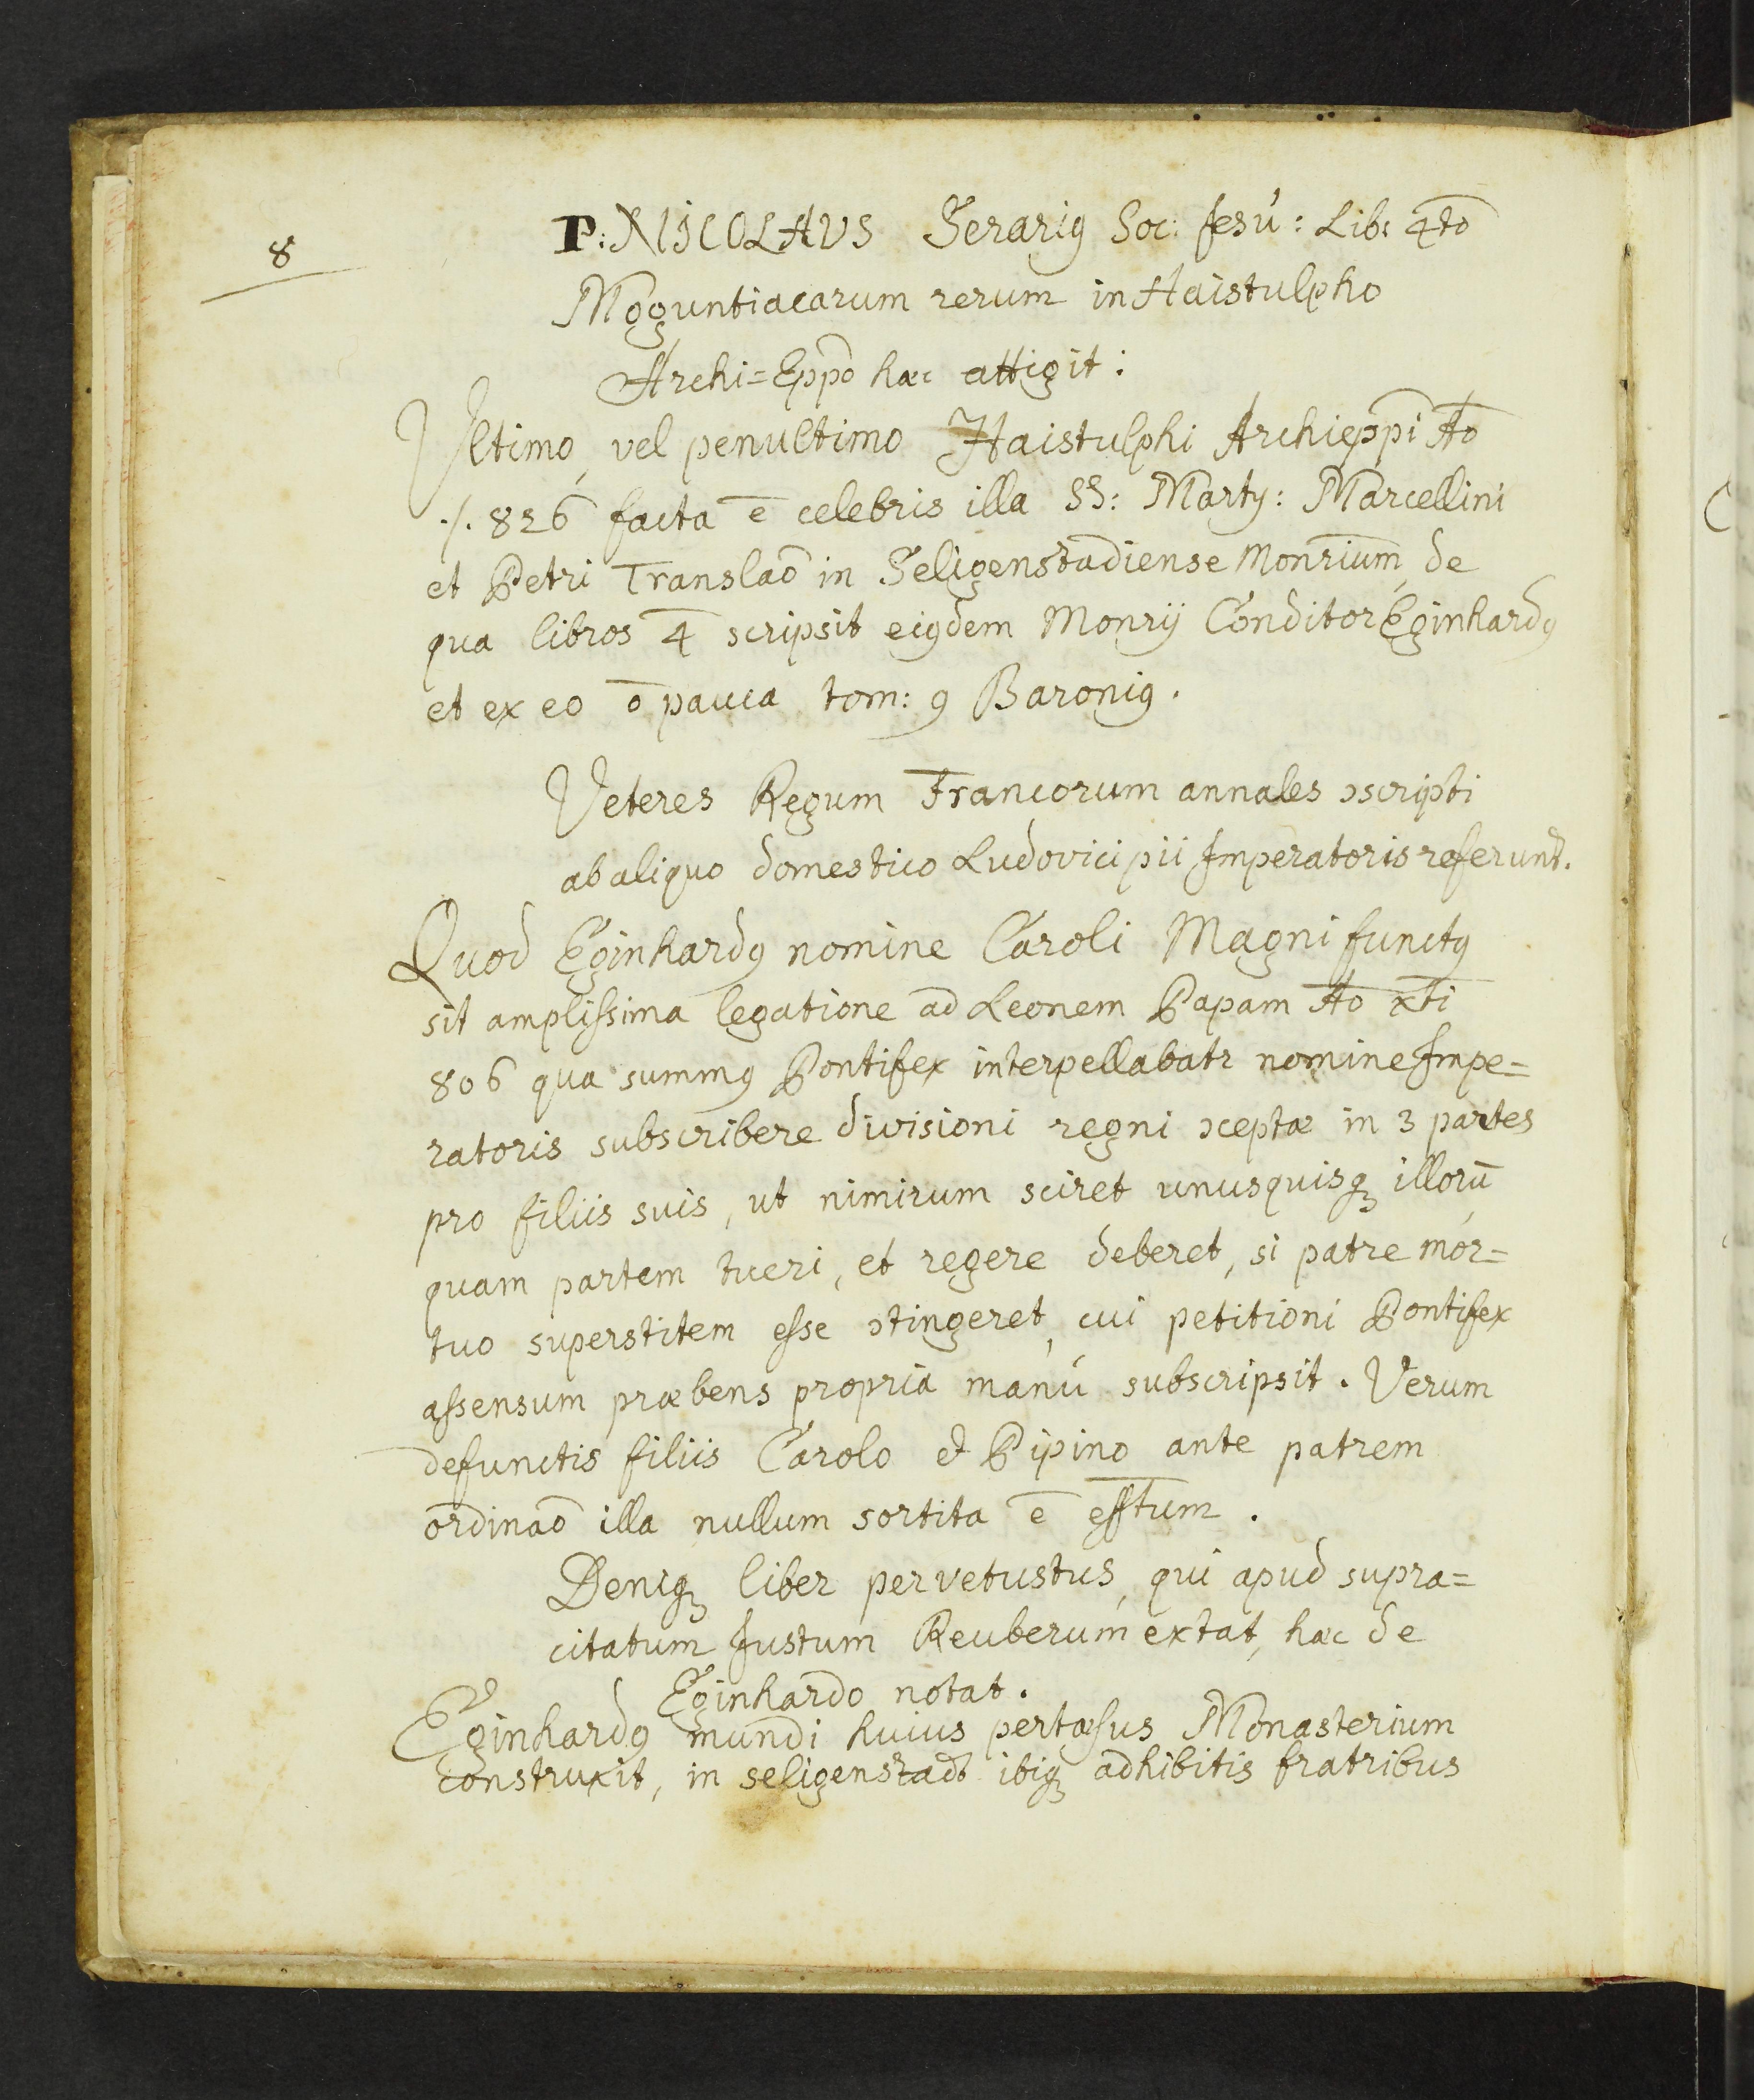 8
P: NICOLAVS Serariꝰ Soc: Jesú: Lib: 4to̅
Moguntiacarum rerum in Haistulpho
Archi=Epp̅o hæc attigit:
Ultimo, vel penultimo Haistulphi Archiepp̅i A̅o
./. 826 facta e̅ celebris illa SS: Marty: Marcellini
et Petri Translao̅ in Seligenstadiense Monr̅ium, de
qua libros 4 scripsit eiꝰdem Monrij Conditor Eginhardꝰ
et ex eo o̅ pauca tom: 9 Baroniꝰ.
Veteres Regum Francorum annales ɔscripti
ab aliquo domestico Ludovici pii Imperatoris referunt.
Quod Eginhardꝰ nomine Caroli Magni functꝰ
sit amplissima legatione ad Leonem Papam A̅o xt̅i
806 qua summꝰ Pontifex interpellabatr nomine Impe=
ratoris subscribere divisioni regni ɔceptæ in 3 partes
pro filiis suis, ut nimirum sciret unusquisqꝫ illoru̅
quam partem tueri, et regere deberet, si patre mor=
tuo superstitem esse ɔtingeret, cui petitioni Pontifex
assensum præbens propria manú subscripsit. Verum
defunctis filiis Carolo et Pipino ante patrem
ordinao̅ illa nullum sortita e̅ efft̅um.
Deniqꝫ liber pervetustus, qui apud supra=
citatum Justum Reuberum extat, hæc de
Eginhardo notat.
Eginhardꝰ mundi huius pertæsus Monasterium
construxit, in seligenstadt ibiqꝫ adhibitis fratribus